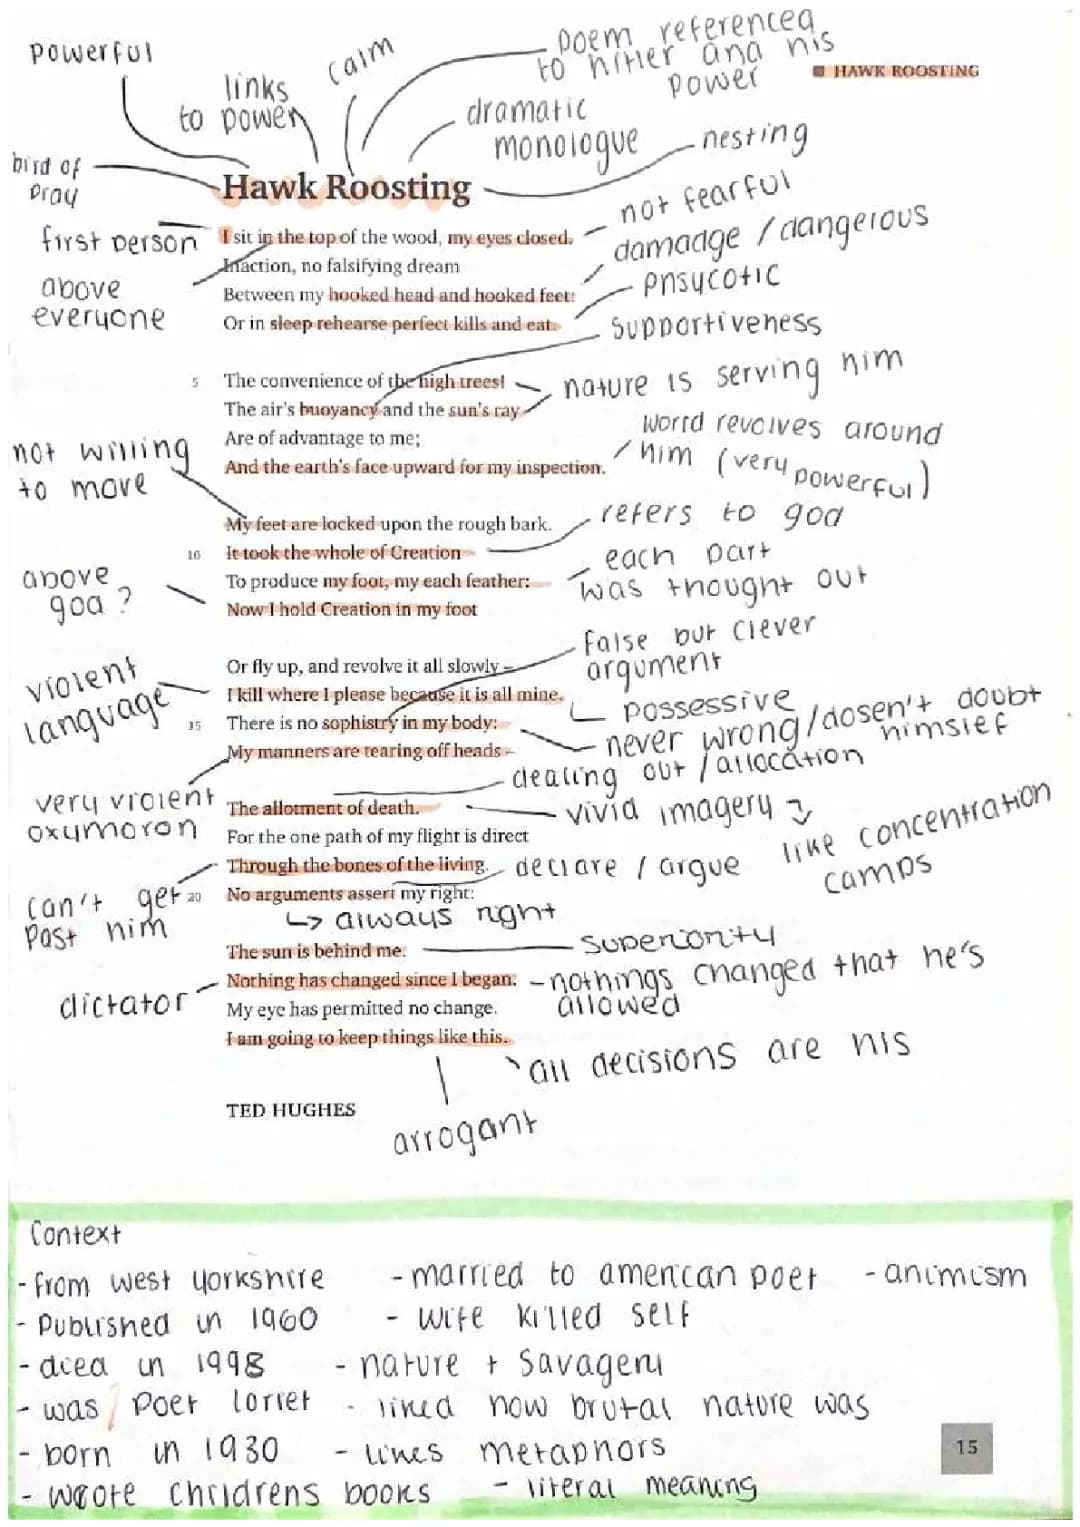 powerful
links
to power
calm
poem referenced
to hitler and his
power
HAWK ROOSTING
dramatic
monologue
nesting
bird of
pray
Hawk Roosting
first person
I sit in the top of the wood, my eyes closed.
not fearful
Inaction, no falsifying dream
damadge / dangerous
above
everyone
Between my hooked head and hooked feet:
phsycotic
Or in sleep rehearse perfect kills and eat.
supportiveness
5 The convenience of the high trees!
nature is serving him
The air's buoyancy and the sun's ray
Are of advantage to me;
world revolves around
him (very powerful)
And the earth's face upward for my inspection.
not willing
to move
My feet are locked upon the rough bark.
refers to god
10 It took the whole of Creation
each part
was thought out
To produce my foot, my each feather:
above
god ?
Now I hold Creation in my foot
false but clever
argument
Or fly up, and revolve it all slowly –
violent
language
I kill where I please because it is all mine.
possessive
15 There is no sophistry in my body:
never wrong/dosen't doubt
himslef
My manners are tearing off heads –
dealing out / allocation
very violent
oxymoron
The allotment of death.
vivid imagery
like concentration
camps
For the one path of my flight is direct
Through the bones of the living.
declare / argue
can't get
past him
20 No arguments assert my right:
always right
The sun is behind me.
superiority
Nothing has changed since I began.
nothings changed that he's
allowed
dictator
My eye has permitted no change.
I am going to keep things like this.
all decisions are his
arrogant
TED HUGHES
Context
- from west yorkshire - married to american poet - animism
- published in 1960 - wife killed self
- died in 1998 - nature + savagery
- was poet loriet - liked how brutal nature was
- born in 1930 - likes metaphors
- wrote childrens books - literal meaning
15